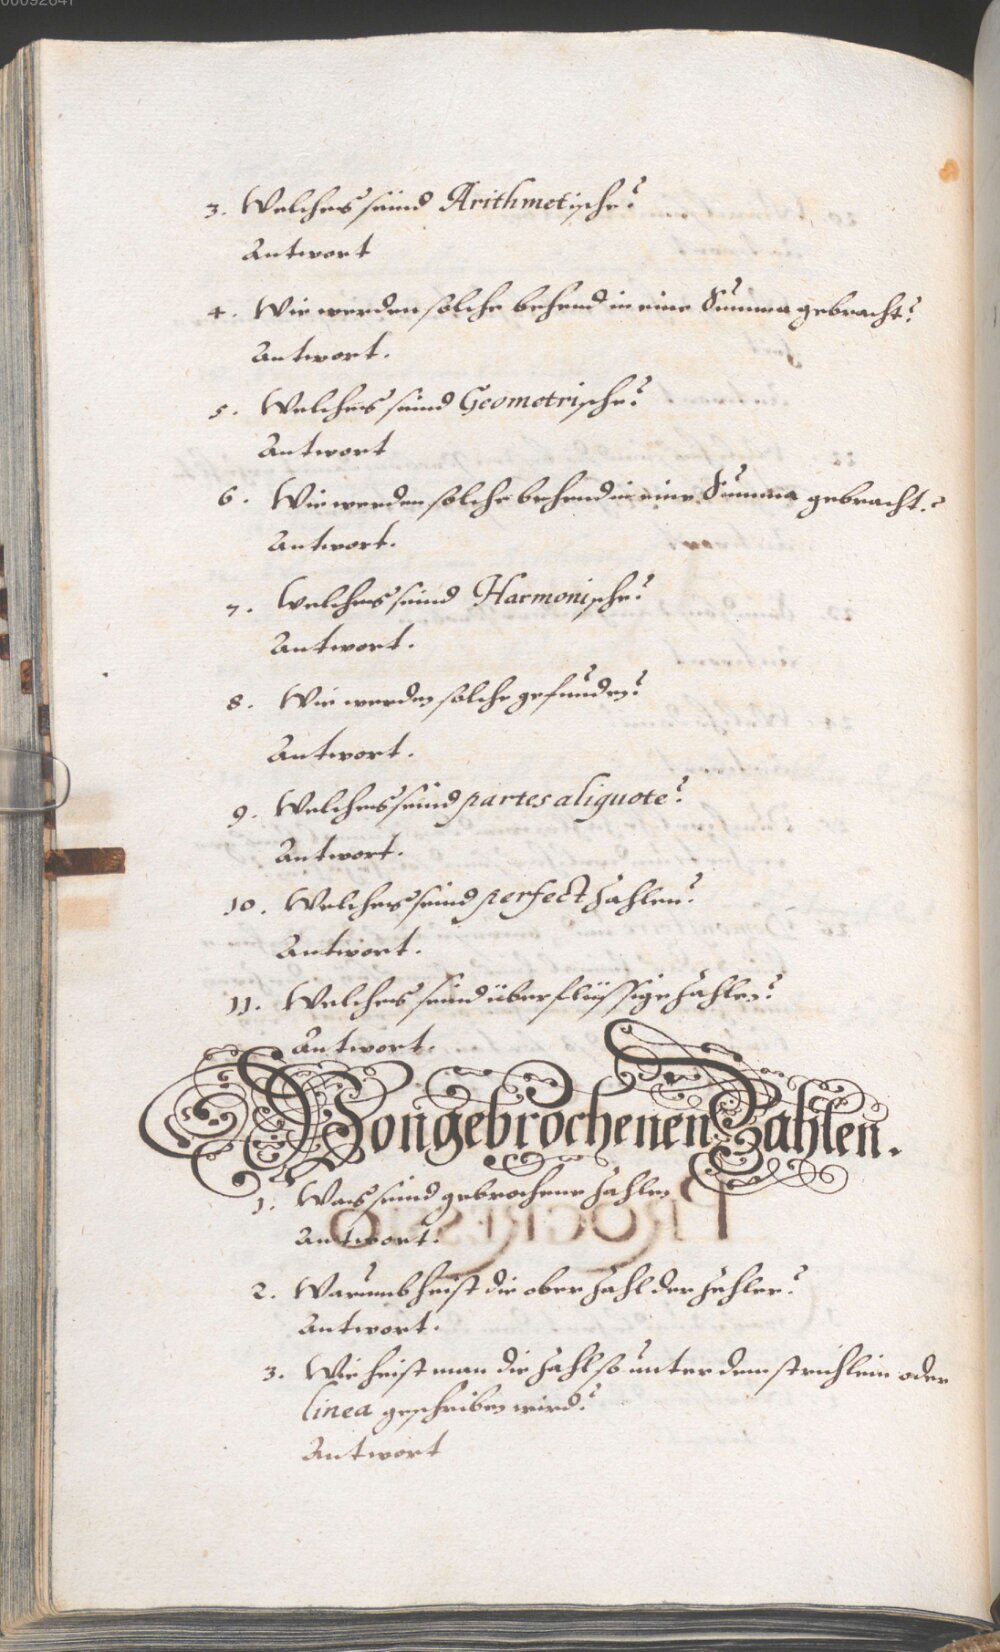 3. Welches seind Arithmetische?
Antwort
4. Wie werden solche behend in eine Summa gebracht?
Antwort.
5. Welches seind Geometrische?
Antwort
6. Wie werden solche behend in eine Summa gebracht?
Antwort.
7. Welches seind Harmonische?
Antwort.
8. Wie werden solche gefunden?
Antwort.
9. Welches seind partes aliquote?
Antwort.
10. Welches seind perfect Zahlen?
Antwort.
11. Welches seind überflüssige Zahlen?
Antwort.
Von gebrochenen Zahlen.
1. Was seind gebrochene Zahlen
Antwort.
2. Warumb heist die ober Zahl der Zehler?
Antwort.
3. Wie heist man die Zahl so unter dem strichlein oder
linea geschriben wird?
Antwort